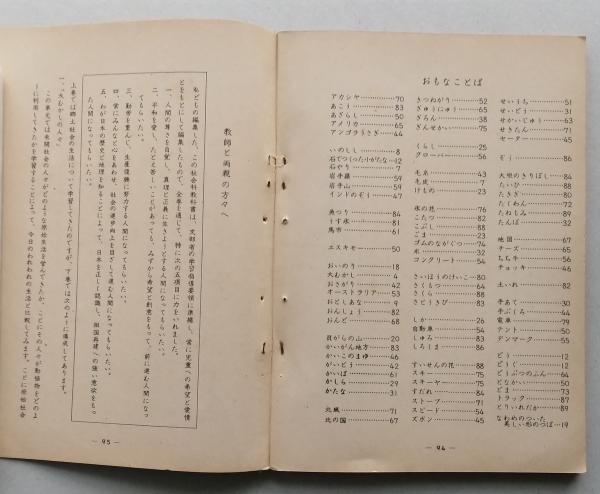 おもなことば
アカシヤ……70
あこう……83
あざらし……50
アメリカ……65
アンゴラうさぎ……44
いのしし……8
石でつくった小がたな…12
石やり……7
岩手縣……59
岩手山……59
インドのぞう……47
魚つり……84
うすい……81
馬市……61
エスキモー……50
おいのり……18
大むかし……4
おさがり……42
オーストラリア……53
おとしあな……9
おんしょう……82
おんど……68
貝がらの山……20
かいがん地方……83
かいこのまゆ……46
がいとう……42
かいば……61
かしら……29
かたな……31
北風……71
北の国……67
きつねがり……52
ぎゅうにゅう……65
ぎろん……38
ぎんせかい……75
くらし……25
クローバー……56
毛糸……43
毛皮……7
けもの……23
氷の花……76
こたつ……82
こぶし……88
ごま……23
ゴムのながぐつ……74
米……32
コンクリート……54
さいほうのけいこ……80
さくもつ……64
さくら……88
さとうきび……83
しか……26
自動車……54
しゅろ……83
しろしま……86
すいせんの花……88
スキー……75
スキーヤ……75
すだれ……84
ストーブ……71
スピード……54
ズボン……45
せいうち……51
せいどう……31
せかいじゅう……63
せきたん……71
セーター……45
ぞう……86
大地のきりぼし……84
たいひ……88
たきぎ……80
たくわん……72
たねもみ……89
たんぼ……32
地図……67
チーズ……65
ちち牛……56
チョッキ……46
土いれ……82
手あて……30
手ぶくろ……44
電車……79
テント……50
デンマーク……55
どう……12
どうぐ……12
どうぶつのふん……64
となかい……50
どま……73
トラック……87
とりいれだか……89
なわめのついた
美しい形のつぼ…19
— 94 —
教師と両親の方々へ
私どもの編集した、この社会科教科書は、文部省の学習指導要領に準拠し、常に児童への希望と愛情
とをもとにして編集したもので、全巻を通して、特に次の五項目に力をいれました。
一、人間の尊さを自覚し、真理と正義に生きようとする人間になってもらいたい。
二、平和を愛し、たとえ苦しいことがあっても、みずから希望と創意をもって、前に進む人間になっ
てもらいたい。
三、勤労を重んじ、生産復興に努力する人間になってもらいたい。
四、常にみんなと心をあわせ、社会の進歩向上を目ざして進む人間になってもらいたい。
五、わが日本の歴史と地理を知ることによって、日本を正しく認識し、祖国再建への強い意欲をもっ
た人間になってもらいたい。
上巻では郷土社会の生活について学習してきたのですが、下巻では次のように構成してあります。
一、「大むかしの人々」
この單元では未開社会の人々がどのような原始生活を営んできたか、ことにその人々が動植物をどのよ
うに利用してきたかを学習することによって、今日のわれわれの生活と比較してみます。ことに原始社会
— 95 —